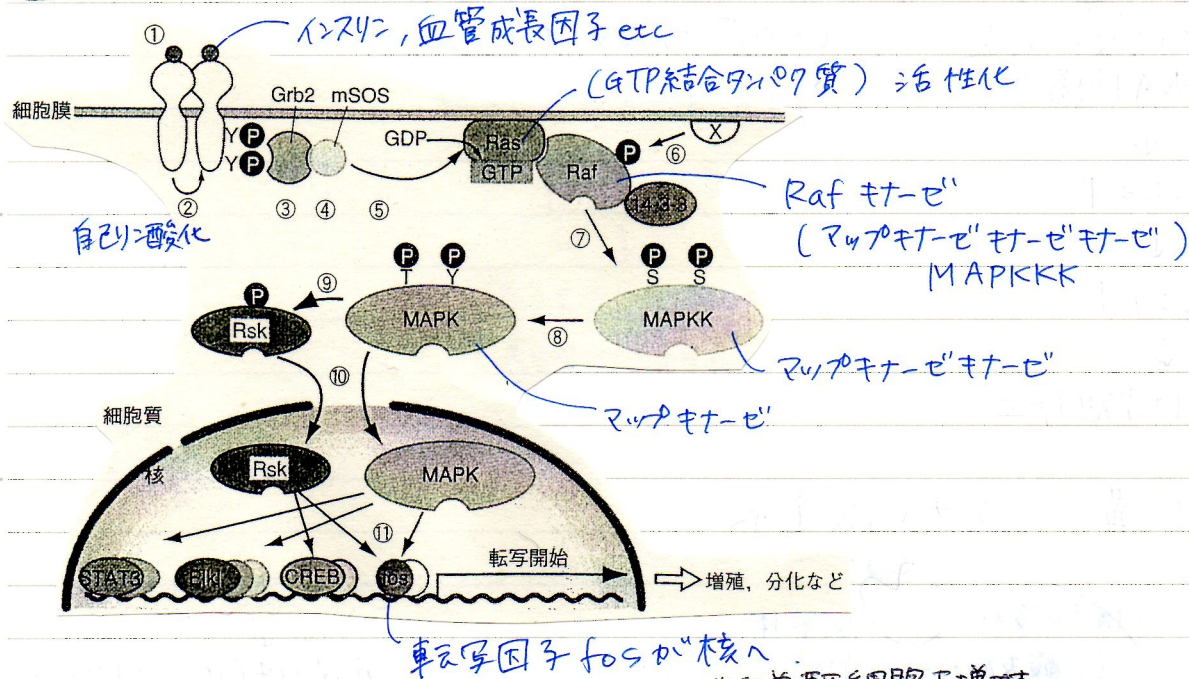 ①
インスリン, 血管成長因子 etc
(GTP結合タンパク質) 活性化
細胞膜
Grb2 mSOS
Y P
Y P
GDP
Ras
GTP
Raf
P
X
⑥
14-3-3
②
③ ④ ⑤
自己リン酸化
⑦
Raf キナーゼ
(マップキナーゼキナーゼキナーゼ)
MAPKKK
P P
T Y
P P
S S
⑨
P
Rsk
MAPK
⑧
MAPKK
マップキナーゼキナーゼ
⑩
マップキナーゼ
細胞質
核
Rsk
MAPK
⑪
STAT3
Elk1
CREB
fos
転写開始
増殖, 分化など
転写因子 fosが核へ